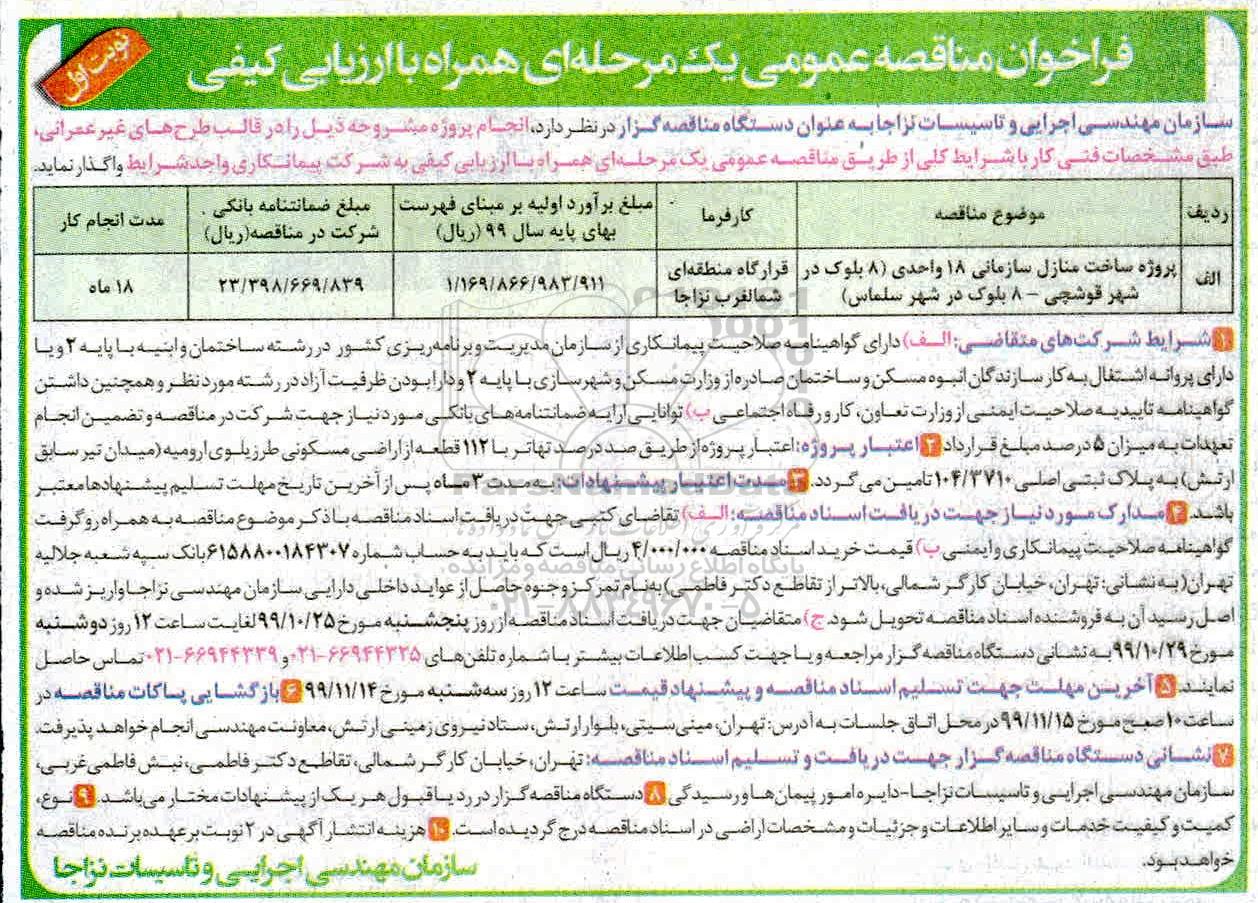 فراخوان مناقصه عمومی یک مرحله‌ای همراه با ارزیابی کیفی
نوبت اول
سازمان مهندسی اجرایی و تاسیسات نزاجا به عنوان دستگاه مناقصه گزار در نظر دارد، انجام پروژه مشروحه ذیل را در قالب طرح‌های غیر عمرانی،
طبق مشخصات فنی کار با شرایط کلی از طریق مناقصه عمومی یک مرحله‌ای همراه با ارزیابی کیفی به شرکت پیمانکاری واجد شرایط واگذار نماید.
ردیف | موضوع مناقصه | کارفرما | مبلغ برآورد اولیه بر مبنای فهرست بهای پایه سال ۹۹ (ریال) | مبلغ ضمانتنامه بانکی شرکت در مناقصه (ریال) | مدت انجام کار
الف | پروژه ساخت منازل سازمانی ۱۸ واحدی (۸ بلوک در شهر قوشچی – ۸ بلوک در شهر سلماس) | قرارگاه منطقه‌ای شمالغرب نزاجا | ۱/۱۶۹/۸۶۶/۹۸۳/۹۱۱ | ۲۳/۳۹۸/۶۶۹/۸۳۹ | ۱۸ ماه
۱ شرایط شرکت‌های متقاضی: الف) دارای گواهینامه صلاحیت پیمانکاری از سازمان مدیریت و برنامه‌ریزی کشور در رشته ساختمان و ابنیه با پایه ۲ و یا
دارای پروانه اشتغال به کار سازندگان انبوه مسکن و ساختمان صادره از وزارت مسکن و شهرسازی با پایه ۲ و دارا بودن ظرفیت آزاد در رشته مورد نظر و همچنین داشتن
گواهینامه تاییدیه صلاحیت ایمنی از وزارت تعاون، کار و رفاه اجتماعی ب) توانایی ارایه ضمانتنامه‌های بانکی مورد نیاز جهت شرکت در مناقصه و تضمین انجام
تعهدات به میزان ۵ درصد مبلغ قرارداد ۲ اعتبار پروژه: اعتبار پروژه از طریق صد درصد تهاتر با ۱۱۲ قطعه از اراضی مسکونی طرز یلوی ارومیه (میدان تیر سابق
ارتش) به پلاک ثبتی اصلی ۱۰۴/۳۷۱۰ تامین می گردد. ۳ مدت اعتبار پیشنهادات: به مدت ۳ ماه پس از آخرین تاریخ مهلت تسلیم پیشنهادها معتبر
باشد. ۴ مدارک مورد نیاز جهت دریافت اسناد مناقصه: الف) تقاضای کتبی جهت دریافت اسناد مناقصه با ذکر موضوع مناقصه به همراه رو گرفت
گواهینامه صلاحیت پیمانکاری و ایمنی ب) قیمت خرید اسناد مناقصه ۴/۰۰۰/۰۰۰ ریال است که باید به حساب شماره ۶۱۵۸۸۰۰۱۸۴۳۰۷ بانک سپه شعبه جلالیه
تهران (به نشانی: تهران، خیابان کارگر شمالی، بالاتر از تقاطع دکتر فاطمی) به نام تمرکز وجوه حاصل از عواید داخلی دارایی سازمان مهندسی نزاجا واریز شده و
اصل رسید آن به فروشنده اسناد مناقصه تحویل شود. ج) متقاضیان جهت دریافت اسناد مناقصه از روز پنجشنبه مورخ ۹۹/۱۰/۲۵ لغایت ساعت ۱۲ روز دوشنبه
مورخ ۹۹/۱۰/۲۹ به نشانی دستگاه مناقصه گزار مراجعه و یا جهت کسب اطلاعات بیشتر با شماره تلفن‌های ۶۶۹۴۴۳۲۵-۰۲۱ و ۶۶۹۴۴۳۳۹-۰۲۱ تماس حاصل
نمایند. ۵ آخرین مهلت جهت تسلیم اسناد مناقصه و پیشنهاد قیمت ساعت ۱۲ روز سه شنبه مورخ ۹۹/۱۱/۱۴ ۶ بازگشایی پاکات مناقصه در
ساعت ۱۰ صبح مورخ ۹۹/۱۱/۱۵ در محل اتاق جلسات به آدرس: تهران، مینی سیتی، بلوار ارتش، ستاد نیروی زمینی ارتش، معاونت مهندسی انجام خواهد پذیرفت.
۷ نشانی دستگاه مناقصه گزار جهت دریافت و تسلیم اسناد مناقصه: تهران، خیابان کارگر شمالی، تقاطع دکتر فاطمی، نبش فاطمی غربی،
سازمان مهندسی اجرایی و تاسیسات نزاجا-دایره امور پیمان‌ها و رسیدگی ۸ دستگاه مناقصه گزار در رد یا قبول هر یک از پیشنهادات مختار می‌باشد. ۹ نوع،
کمیت و کیفیت خدمات و سایر اطلاعات و جزئیات و مشخصات اراضی در اسناد مناقصه درج گردیده است. ۱۰ هزینه انتشار آگهی در ۲ نوبت بر عهده برنده مناقصه
خواهد بود.
سازمان مهندسی اجرایی و تاسیسات نزاجا
ParsNamadData
پایگاه اطلاع رسانی مناقصه و مزایده
۰۲۱-۸۸۳۴۹۶۷۰-۵